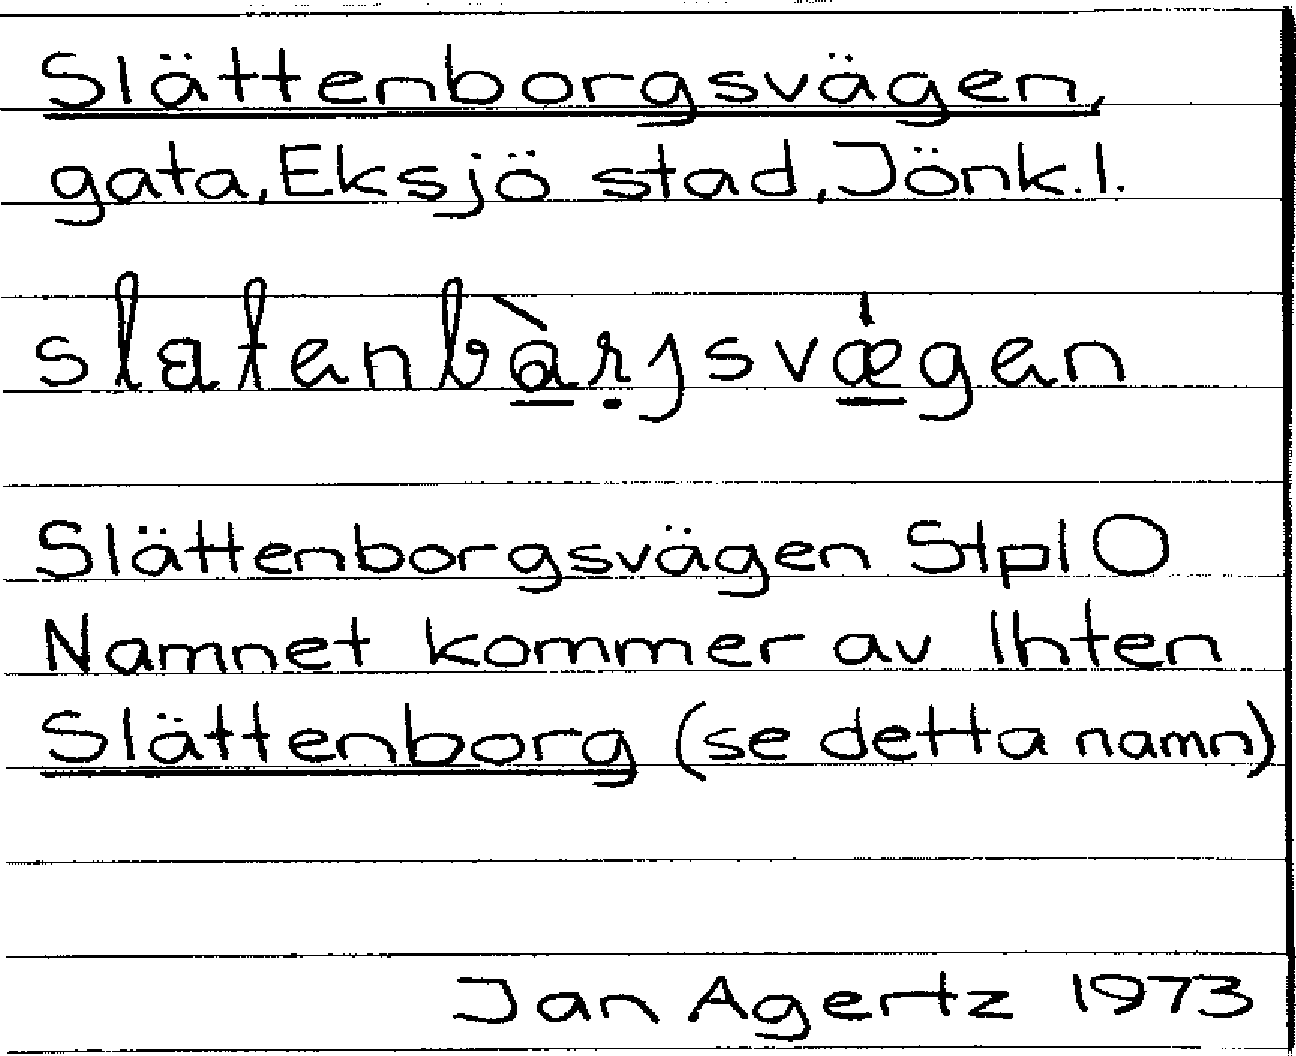 Slättenborgsvägen,
gata, Eksjö stad, Jönk. l.
Slättenborgsvägen Stpl O
Namnet kommer av Ihten
Slättenborg (se detta namn)
Jan Agertz 1973